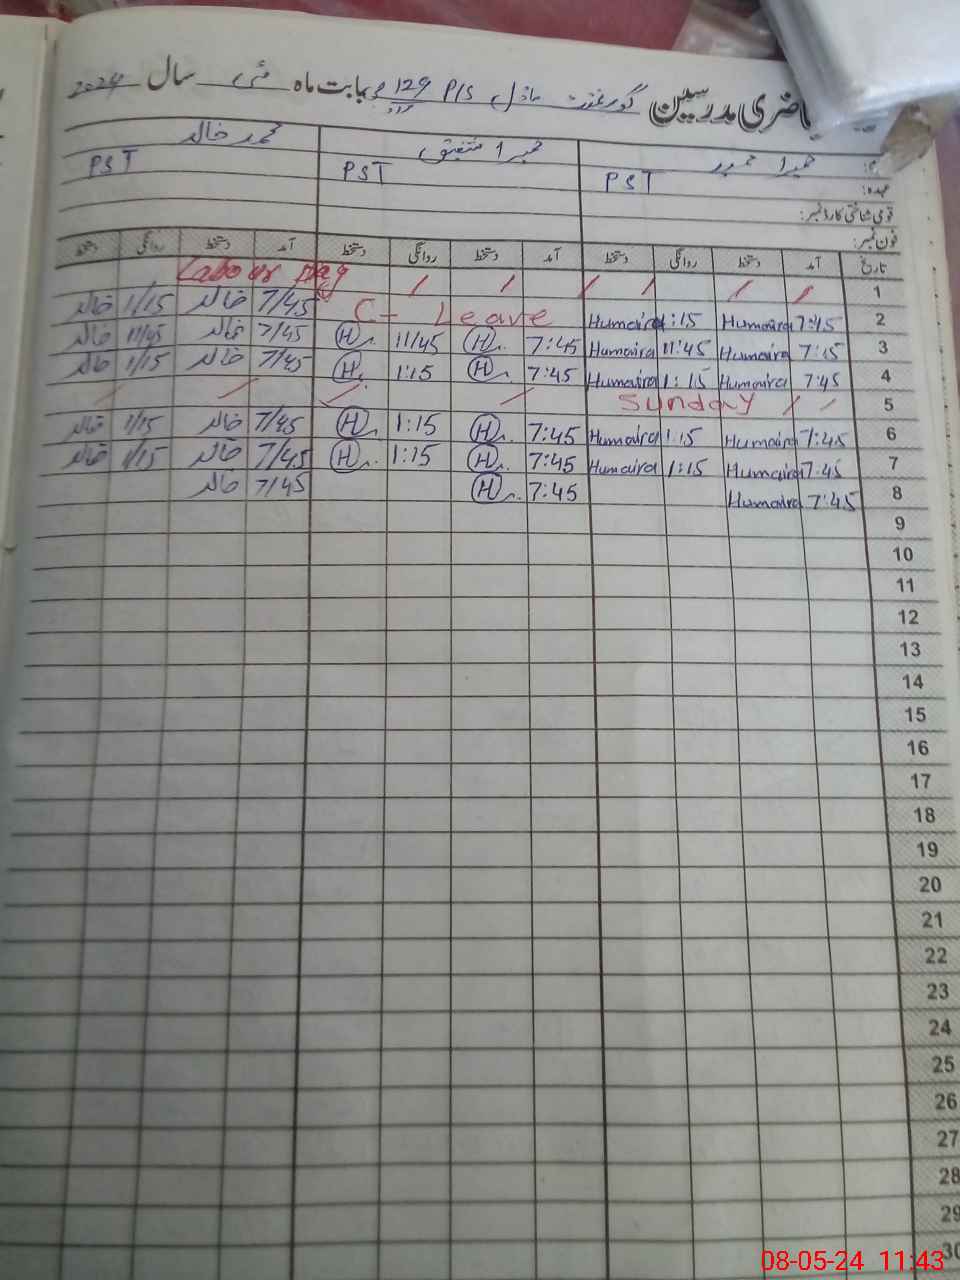 حاضری مدرسین گورنمنٹ ماڈل P/S 129 بابت ماہ مئی سال 2024
نام: حمیرا حمید حمیرا شفیق محمد خالد
عہدہ: PST PST PST
قومی شناختی کارڈ نمبر:
فون نمبر:
تاریخ آمد دستخط روانگی دستخط آمد دستخط روانگی دستخط آمد دستخط روانگی دستخط
1 Labour Day
2 7:45 Humaira 1:15 Humaira C- Leave 7/45 خالد 1/15 خالد
3 7:45 Humaira 11:45 Humaira 7:45 H 11/45 H 7/45 خالد 11/45 خالد
4 7:45 Humaira 1:15 Humaira 7:45 H 1:15 H 7/45 خالد 1/15 خالد
5 Sunday
6 7:45 Humaira 1:15 Humaira 7:45 H 1:15 H 7/45 خالد 1/15 خالد
7 7:45 Humaira 1:15 Humaira 7:45 H 1:15 H 7/45 خالد 1/15 خالد
8 7:45 Humaira 7:45 H 7/45 خالد
9
10
11
12
13
14
15
16
17
18
19
20
21
22
23
24
25
26
27
28
29
30
08-05-24 11:43